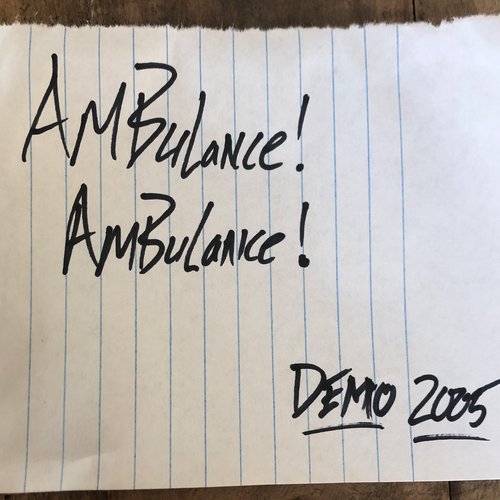 AMBulance!
AMBulance!
DEMO 2005